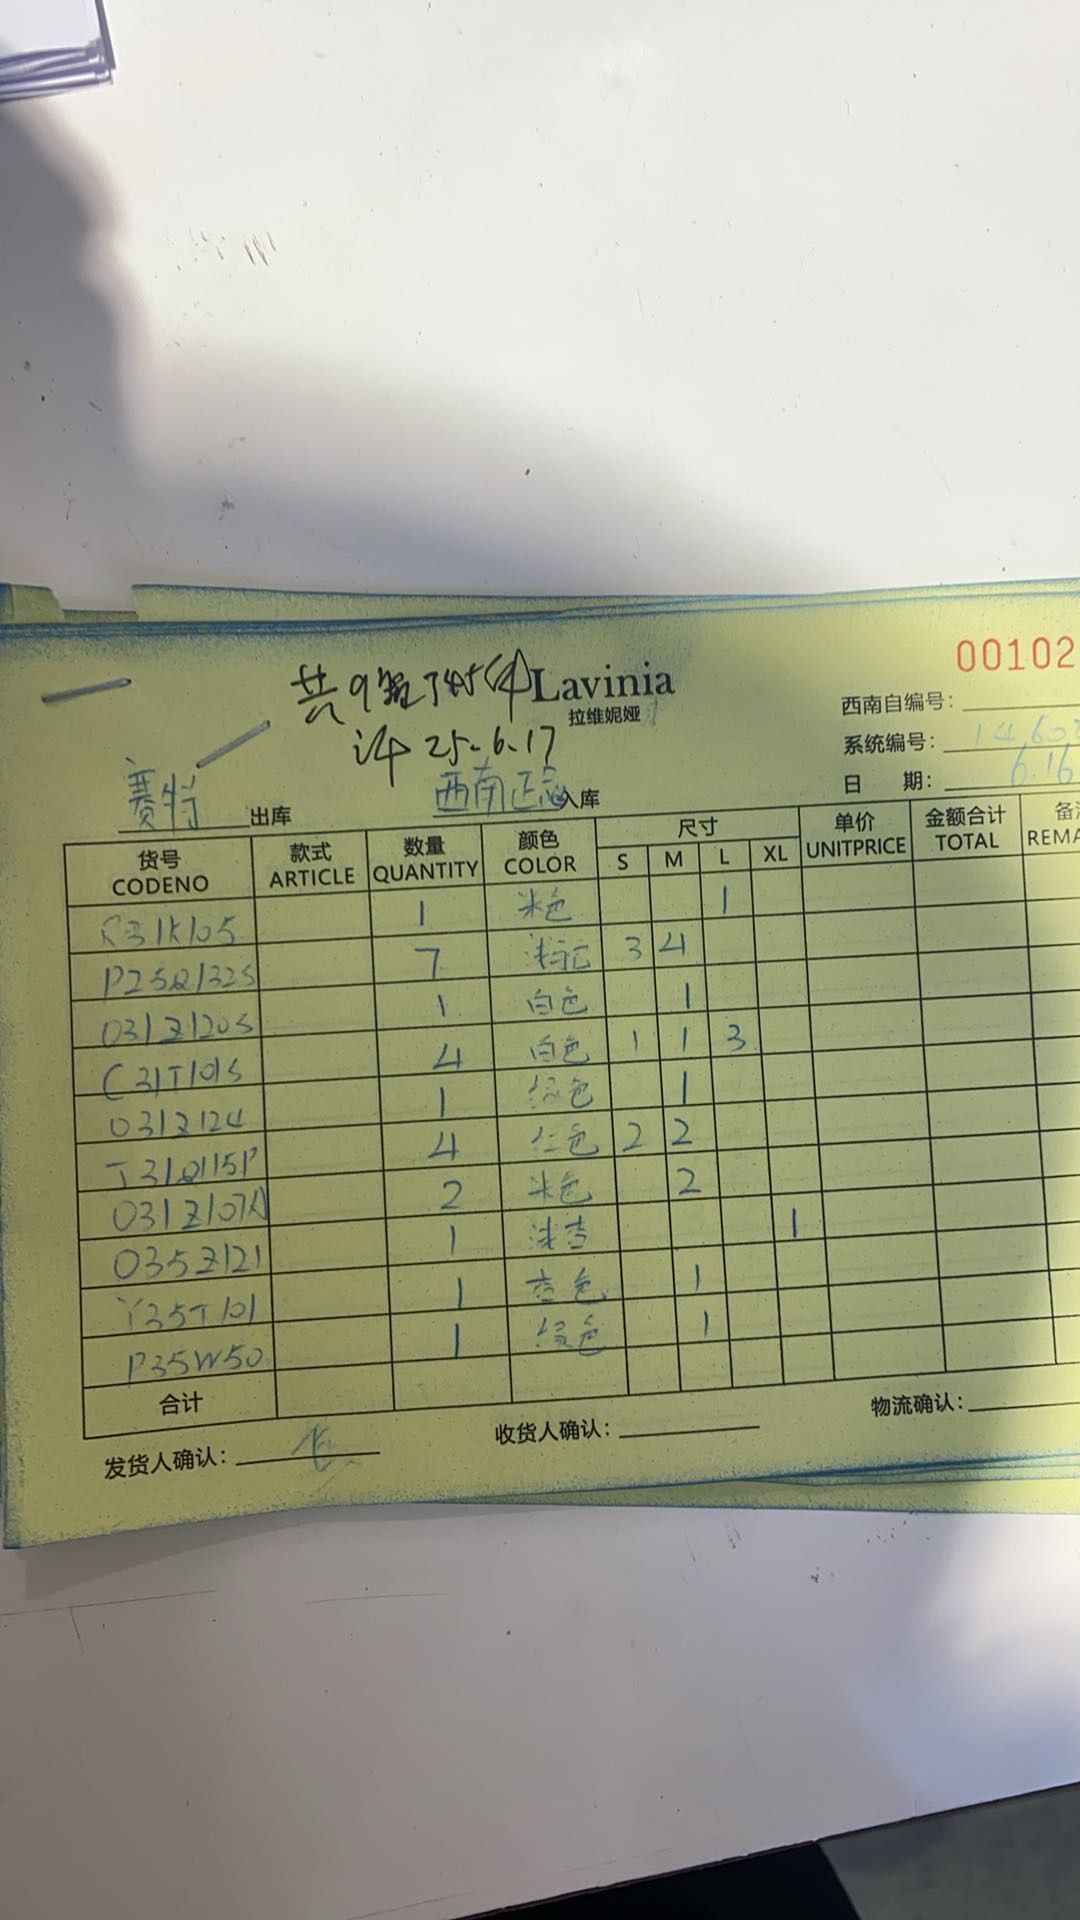 00102
共9箱 745件 Lavinia
拉维妮娅
西南自编号:
25.6.17
系统编号: 14602
日 期: 6.16
赛特 出库 西南正 入库
货号 CODENO 款式 ARTICLE 数量 QUANTITY 颜色 COLOR 尺寸 S M L XL 单价 UNITPRICE 金额合计 TOTAL
31K105 1 米色 1
P25Q132S 7 3 4
O31Z120S 1 白色 1
C31T101S 4 白色 1 1 3
O31Z124 1 绿色 1
T31Q115P 4 红色 2 2
O31Z107A 2 米色 2
O35Z121 1 浅杏 1
Y35T101 1 杏色 1
P35W50 1 绿色 1
合计
发货人确认: 收货人确认: 物流确认: